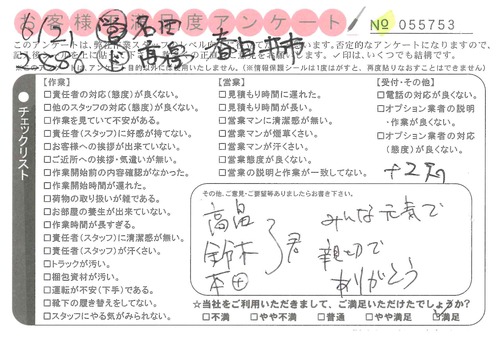 お客様満足度アンケート
No 055753
6/21
営 名西
春日井
このアンケートは、弊社
否定的なアンケートになりますので、
お願いします。✓印は、いくつでも結構です。
※このアンケートは、アンケート目的以外に使用いたしません。（※情報保護シールは1度はがすと、再度貼りなおすことはできません）
チェックリスト
【作業】
□責任者の対応(態度)が良くない。
□他のスタッフの対応(態度)が良くない。
□作業を見ていて不安がある。
□責任者(スタッフ)に好感が持てない。
□お客様への挨拶が出来ていない。
□ご近所への挨拶・気遣いが無い。
□作業開始前の内容確認がなかった。
□作業開始時間が遅れた。
□荷物の取り扱いが雑である。
□お部屋の養生が出来ていない。
□作業時間が長すぎる。
□責任者(スタッフ)に清潔感が無い。
□責任者(スタッフ)が汗くさい。
□トラックが汚い。
□梱包資材が汚い。
□運転が不安(下手)である。
□靴下の履き替えをしてない。
□スタッフにやる気がみられない。
【営業】
□見積もり時間に遅れた。
□見積もり時間が長い。
□営業マンに清潔感が無い。
□営業マンが煙草くさい。
□営業マンが汗くさい。
□営業態度が良くない。
□営業の説明と作業が一致してない。
【受付・その他】
□電話の対応が良くない。
□オプション業者の説明
・作業が良くない。
□オプション業者の対応
(態度)が良くない。
その他、ご意見・ご要望等ありましたらお書き下さい。
高畠
鈴木
本田
君
みんな元気で
親切で
ありがとう
☆当社をご利用いただきまして、ご満足いただけたでしょうか?
□不満 □やや不満 □普通 □やや満足 ☑満足